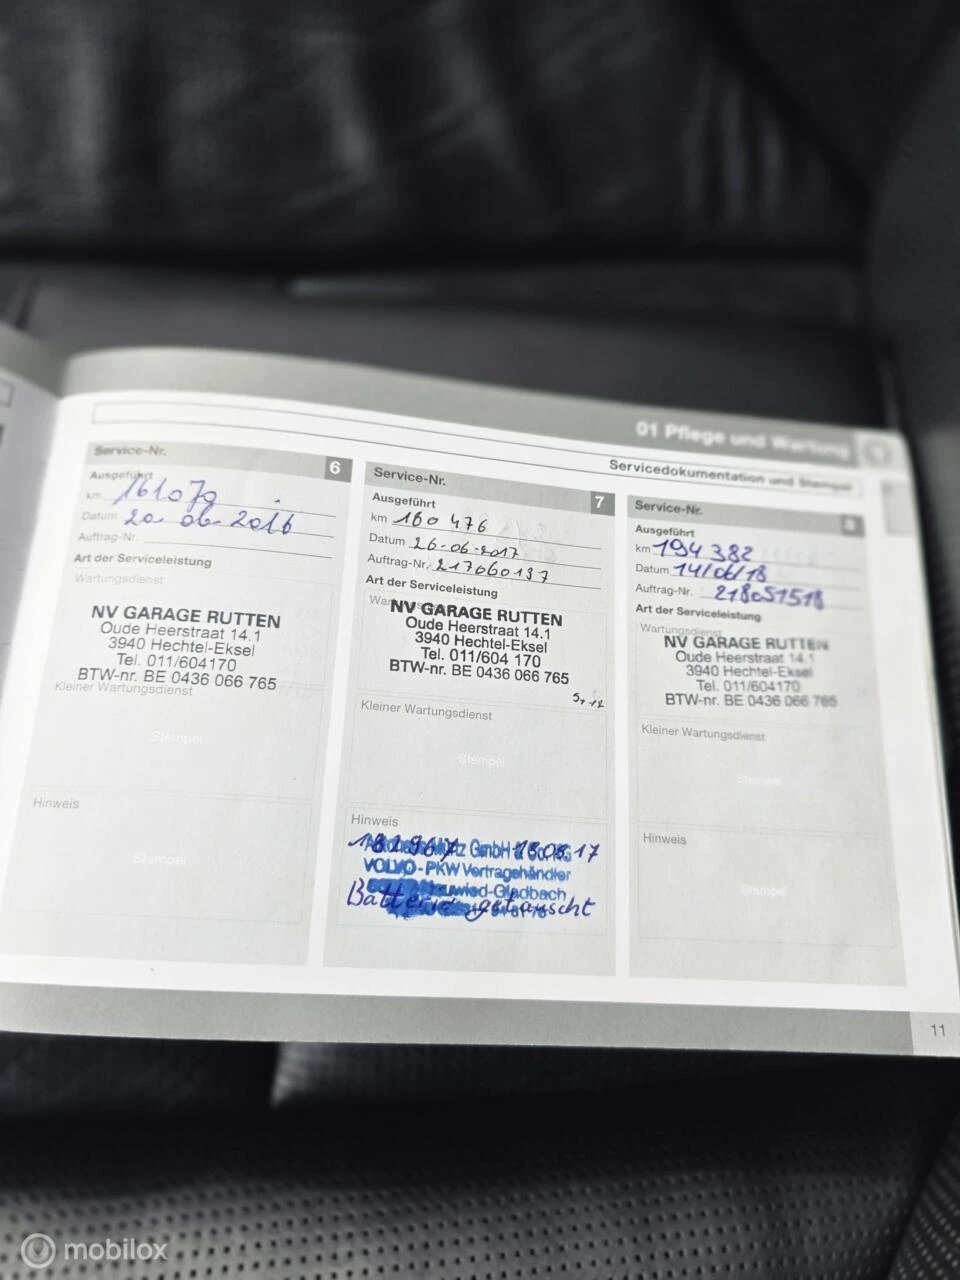 01 Pflege und Wartung
Servicedokumentation und Stempel
Service-Nr. 6
Ausgeführt
km 161079
Datum 20 06 2016
Auftrag-Nr.
Art der Serviceleistung
Wartungsdienst
NV GARAGE RUTTEN
Oude Heerstraat 14.1
3940 Hechtel-Eksel
Tel. 011/604170
BTW-nr. BE 0436 066 765
Kleiner Wartungsdienst
Stempel
Hinweis
Stempel
Service-Nr. 7
Ausgeführt
km 180 476
Datum 26-06-2017
Auftrag-Nr. 217060197
Art der Serviceleistung
NV GARAGE RUTTEN
Oude Heerstraat 14.1
3940 Hechtel-Eksel
Tel. 011/604 170
BTW-nr. BE 0436 066 765
Kleiner Wartungsdienst
Stempel
Hinweis
GmbH
VOLVO - PKW Vertragshändler
Neuwied-Gladbach
Batterie getauscht
Service-Nr. 8
Ausgeführt
km 194 382
Datum 14/06/18
Auftrag-Nr. 218051518
Art der Serviceleistung
Wartungsdienst
NV GARAGE RUTTEN
Oude Heerstraat 14.1
3940 Hechtel-Eksel
Tel. 011/604170
BTW-nr. BE 0436 066 765
Kleiner Wartungsdienst
Stempel
Hinweis
Stempel
11
mobilox